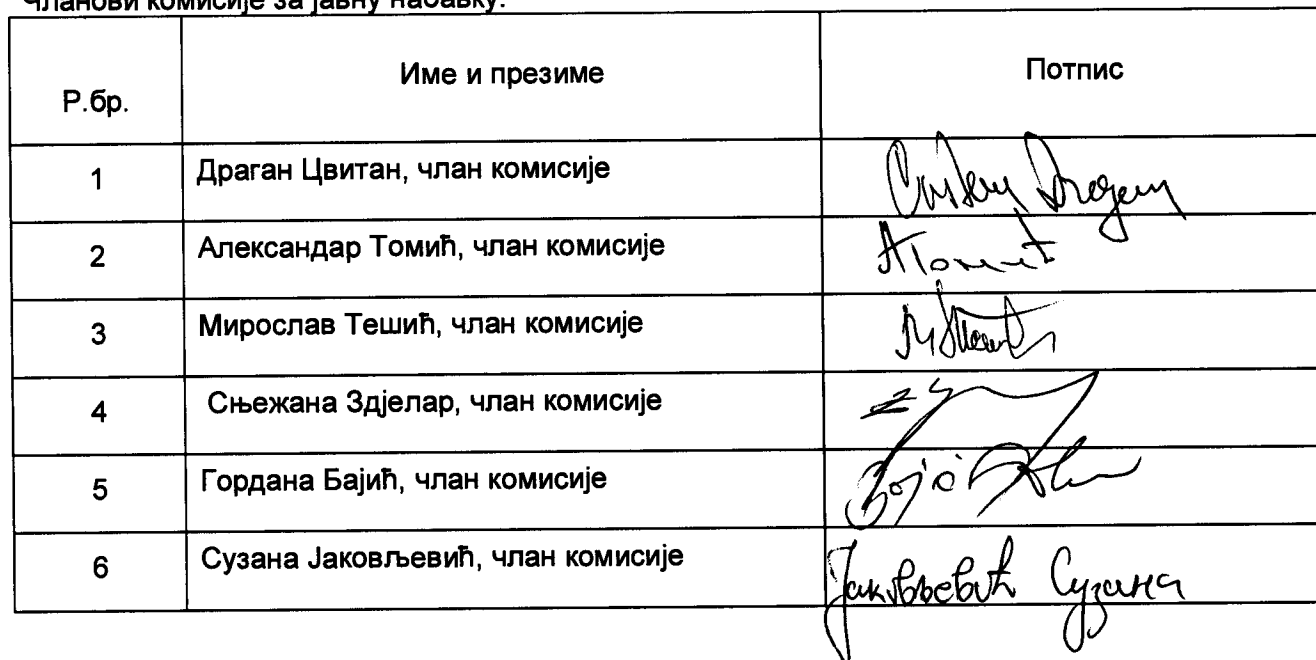 Чланови комисије за јавну набавку:
Р.бр. Име и презиме Потпис
1 Драган Цвитан, члан комисије
2 Александар Томић, члан комисије
3 Мирослав Тешић, члан комисије
4 Сњежана Здјелар, члан комисије
5 Гордана Бајић, члан комисије
6 Сузана Јаковљевић, члан комисије Јаковљевић Сузана